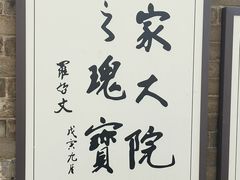 家大院
之瑰寶
羅哲文
戊寅九月